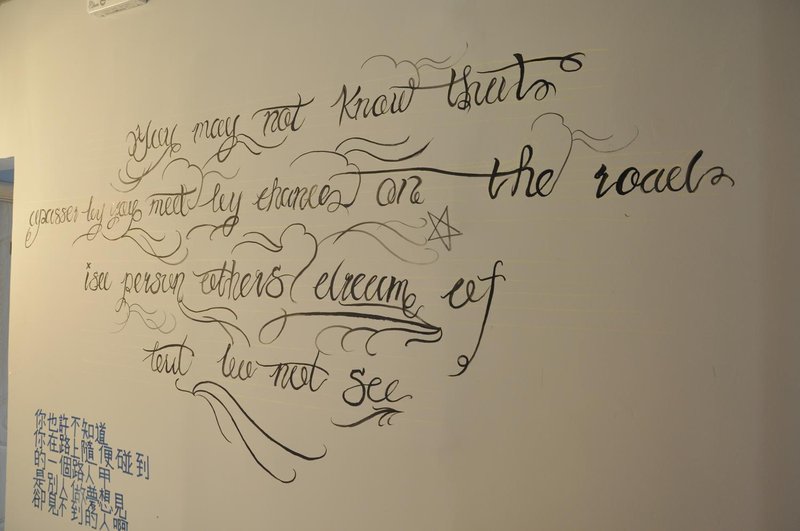 You may not know that
apasser by you meet by chance on the road
is a person others dream of
but do not see
你也許不知道
你在路上隨便碰到
的一個路人甲
是別人做夢想見
卻見不到的人啊